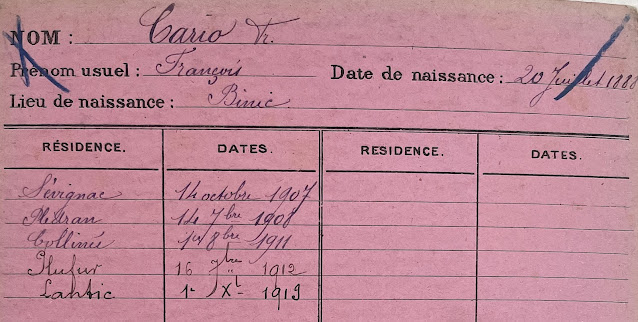 NOM : Cario Fr.
Prénom usuel : François Date de naissance : 20 Juillet 1888
Lieu de naissance : Binic
RÉSIDENCE. DATES. RESIDENCE. DATES.
Sévignac 14 octobre 1907
Plédran 14 7bre 1908
Collinée 1er 8bre 1911
Plufur 16 7bre 1912
Lantic 1er Xbre 1913